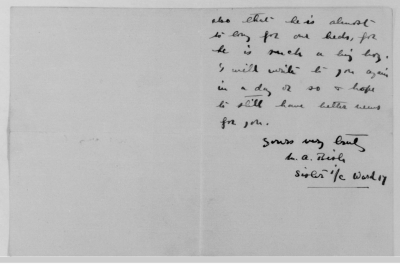 also that he is almost
to long for our beds, for
he is such a big boy.
I will write to you again
in a day or so & hope
to still have better news
for you.
Yours very truly
M. A.
Sister i/c Ward 17